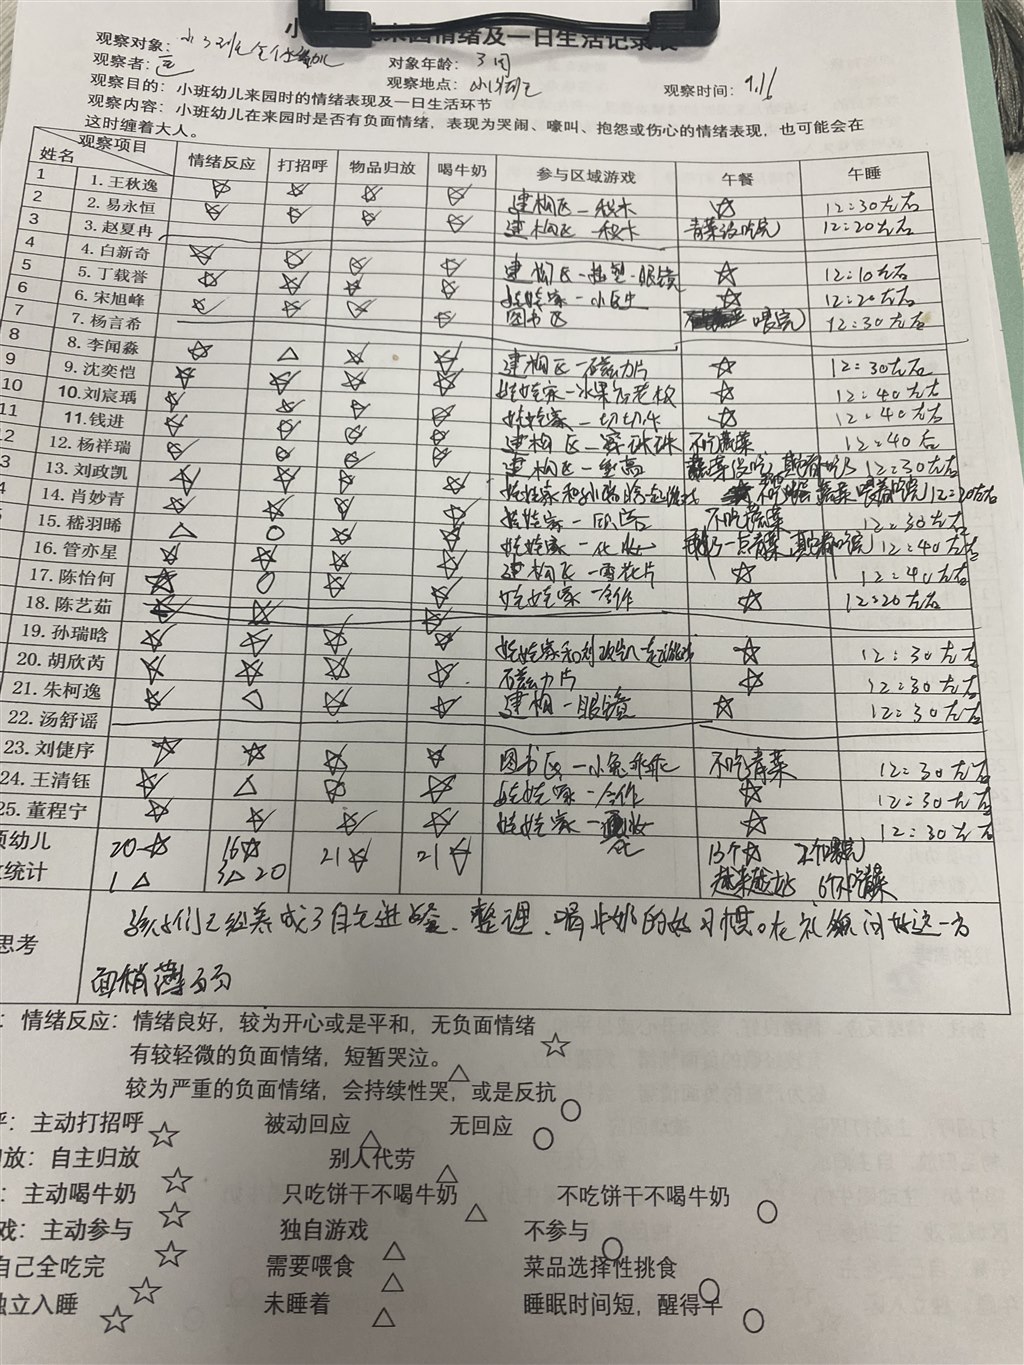 来园情绪及一日生活记录表
观察对象：小3班全体幼儿
观察者： 对象年龄：3周
观察地点：小3班 观察时间：9.16
观察目的：小班幼儿来园时的情绪表现及一日生活环节
观察内容：小班幼儿在来园时是否有负面情绪，表现为哭闹、嚎叫、抱怨或伤心的情绪表现，也可能会在
这时缠着大人。
观察项目 姓名 情绪反应 打招呼 物品归放 喝牛奶 参与区域游戏 午餐 午睡
1 1. 王秋逸 ☆ ☆ ☆ ☆ 建构区－积木 ☆ 12:30左右
2 2. 易永恒 ☆ ☆ ☆ ☆ 建构区－积木 青菜没吃完 12:20左右
3 3. 赵夏冉
4 4. 白新奇 ☆ ☆ ☆ ☆ 建构区－造型－眼镜 ☆ 12:10左右
5 5. 丁载誉 ☆ ☆ ☆ ☆ 娃娃家－ ☆ 12:20左右
6 6. 宋旭峰 ☆ ☆ ☆ ☆ 图书区 喂完 12:30左右
7 7. 杨言希
8 8. 李闻淼 ☆ △ ☆ ☆ 建构区－磁力片 ☆ 12:30左右
9 9. 沈奕恺 ☆ ☆ ☆ ☆ 娃娃家－水果店老板 ☆ 12:40左右
10 10. 刘宸瑀 ☆ ☆ ☆ ☆ 娃娃家－切切乐 ☆ 12:40左右
11 11. 钱进 ☆ ☆ ☆ ☆ 建构区－ 不吃蔬菜 12:40右
12 12. 杨祥瑞 ☆ ☆ ☆ 建构区－垒高 蔬菜没吃，其它都吃了 12:30左右
13. 刘政凯 ☆ ☆ ☆ ☆ 娃娃家和孙瑞晗 蔬菜喂着吃完 12:20左右
14. 肖妙青 ☆ ☆ ☆ 娃娃家－ 不吃蔬菜 12:30左右
15. 嵇羽晞 △ ○ ☆ ☆ 娃娃家－化妆 吃了一点青菜 其它都吃完 12:40左右
16. 管亦星 ☆ ☆ ☆ ☆ 建构区－雪花片 ☆ 12:40左右
17. 陈怡何 ☆ ○ ☆ ☆ 娃娃家－合作 ☆ 12:20左右
18. 陈艺茹
19. 孙瑞晗 ☆ ☆ ☆ ☆ 娃娃家和刘政凯一起游戏 ☆ 12:30左右
20. 胡欣芮 ☆ ☆ ☆ ☆ 磁力片 ☆ 12:30左右
21. 朱柯逸 ☆ ☆ ☆ 建构－眼镜 ☆ 12:30左右
22. 汤舒谣
23. 刘倢序 ☆ ☆ ☆ ☆ 图书区－小兔乖乖 不吃青菜 12:30左右
24. 王清钰 ☆ △ ☆ ☆ 娃娃家－合作 ☆ 12:30左右
25. 董程宁 ☆ ☆ ☆ ☆ 娃娃家－化妆 ☆ 12:30左右
项幼儿 20☆ 16☆ 21☆ 21☆ 13个☆ 2个喂完
统计 1△ 3△ 2○ 6个不吃青菜
思考
孩子们已经养成了自己进餐、整理、喝牛奶的好习惯。在礼貌问好这一方
面稍薄弱
：情绪反应：情绪良好，较为开心或是平和，无负面情绪☆
有较轻微的负面情绪，短暂哭泣。△
较为严重的负面情绪，会持续性哭，或是反抗○
呼：主动打招呼☆ 被动回应△ 无回应○
放：自主归放☆ 别人代劳△
：主动喝牛奶☆ 只吃饼干不喝牛奶△ 不吃饼干不喝牛奶○
戏：主动参与☆ 独自游戏△ 不参与○
自己全吃完☆ 需要喂食△ 菜品选择性挑食○
独立入睡☆ 未睡着△ 睡眠时间短，醒得早○